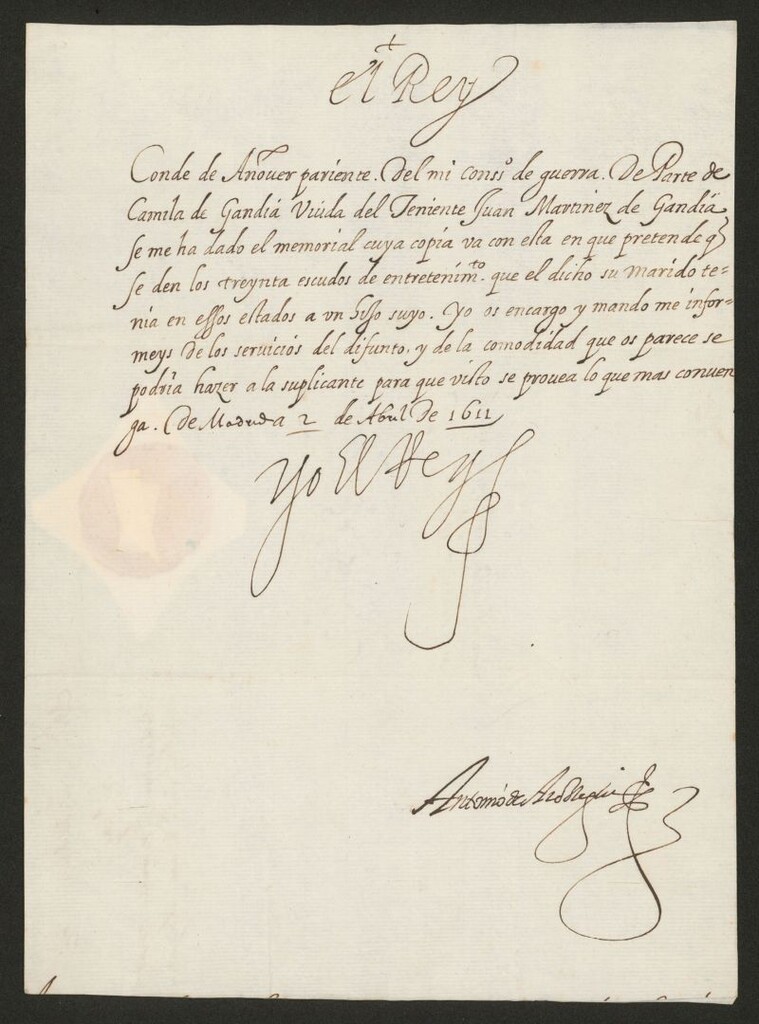 el Rey
Conde de Añover pariente. Del mi cons.º de guerra. De Parte de
Camila de Gandia Viuda del Teniente Juan Martinez de Gandia
se me ha dado el memorial cuya copia va con esta en que pretende q
se den los treynta escudos de entretenim.to que el dicho su marido te=
nia en essos estados a vn hijo suyo. Yo os encargo y mando me infor=
meys de los servicios del difunto, y de la comodidad que os parece se
podria hazer a la suplicante para que visto se prouea lo que mas conuen
ga. De Madrid a 2 de Abril De 1611
Yo El Rey
Antonio de